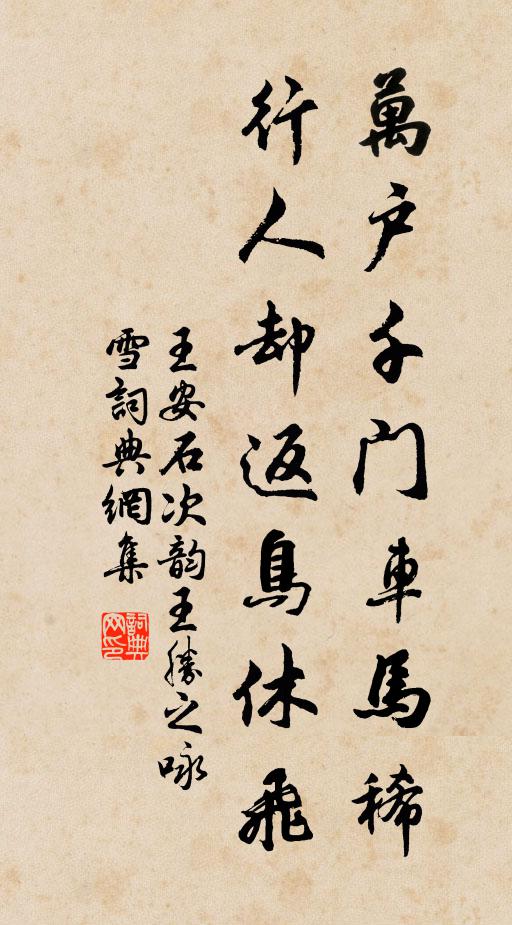 萬户千门車馬稀
行人却返鳥休飛
王安石次韵王勝之咏
雪詞典網集
詞典网印